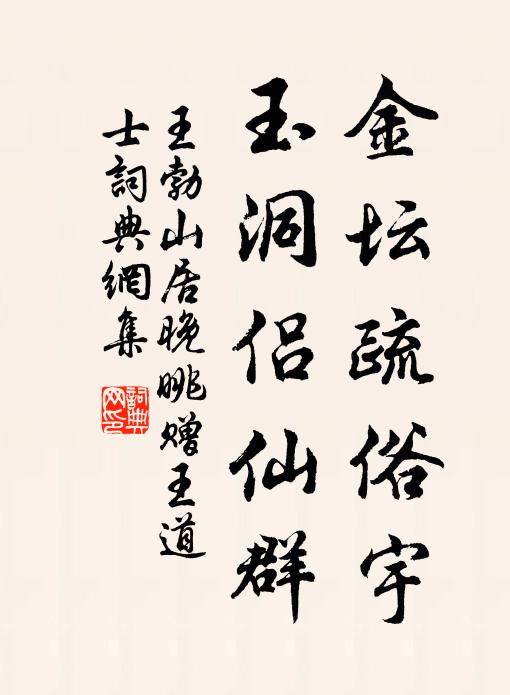 金坛疏俗宇
玉洞侣仙群
王勃山居晚眺赠王道
士詞典網集
詞典网印